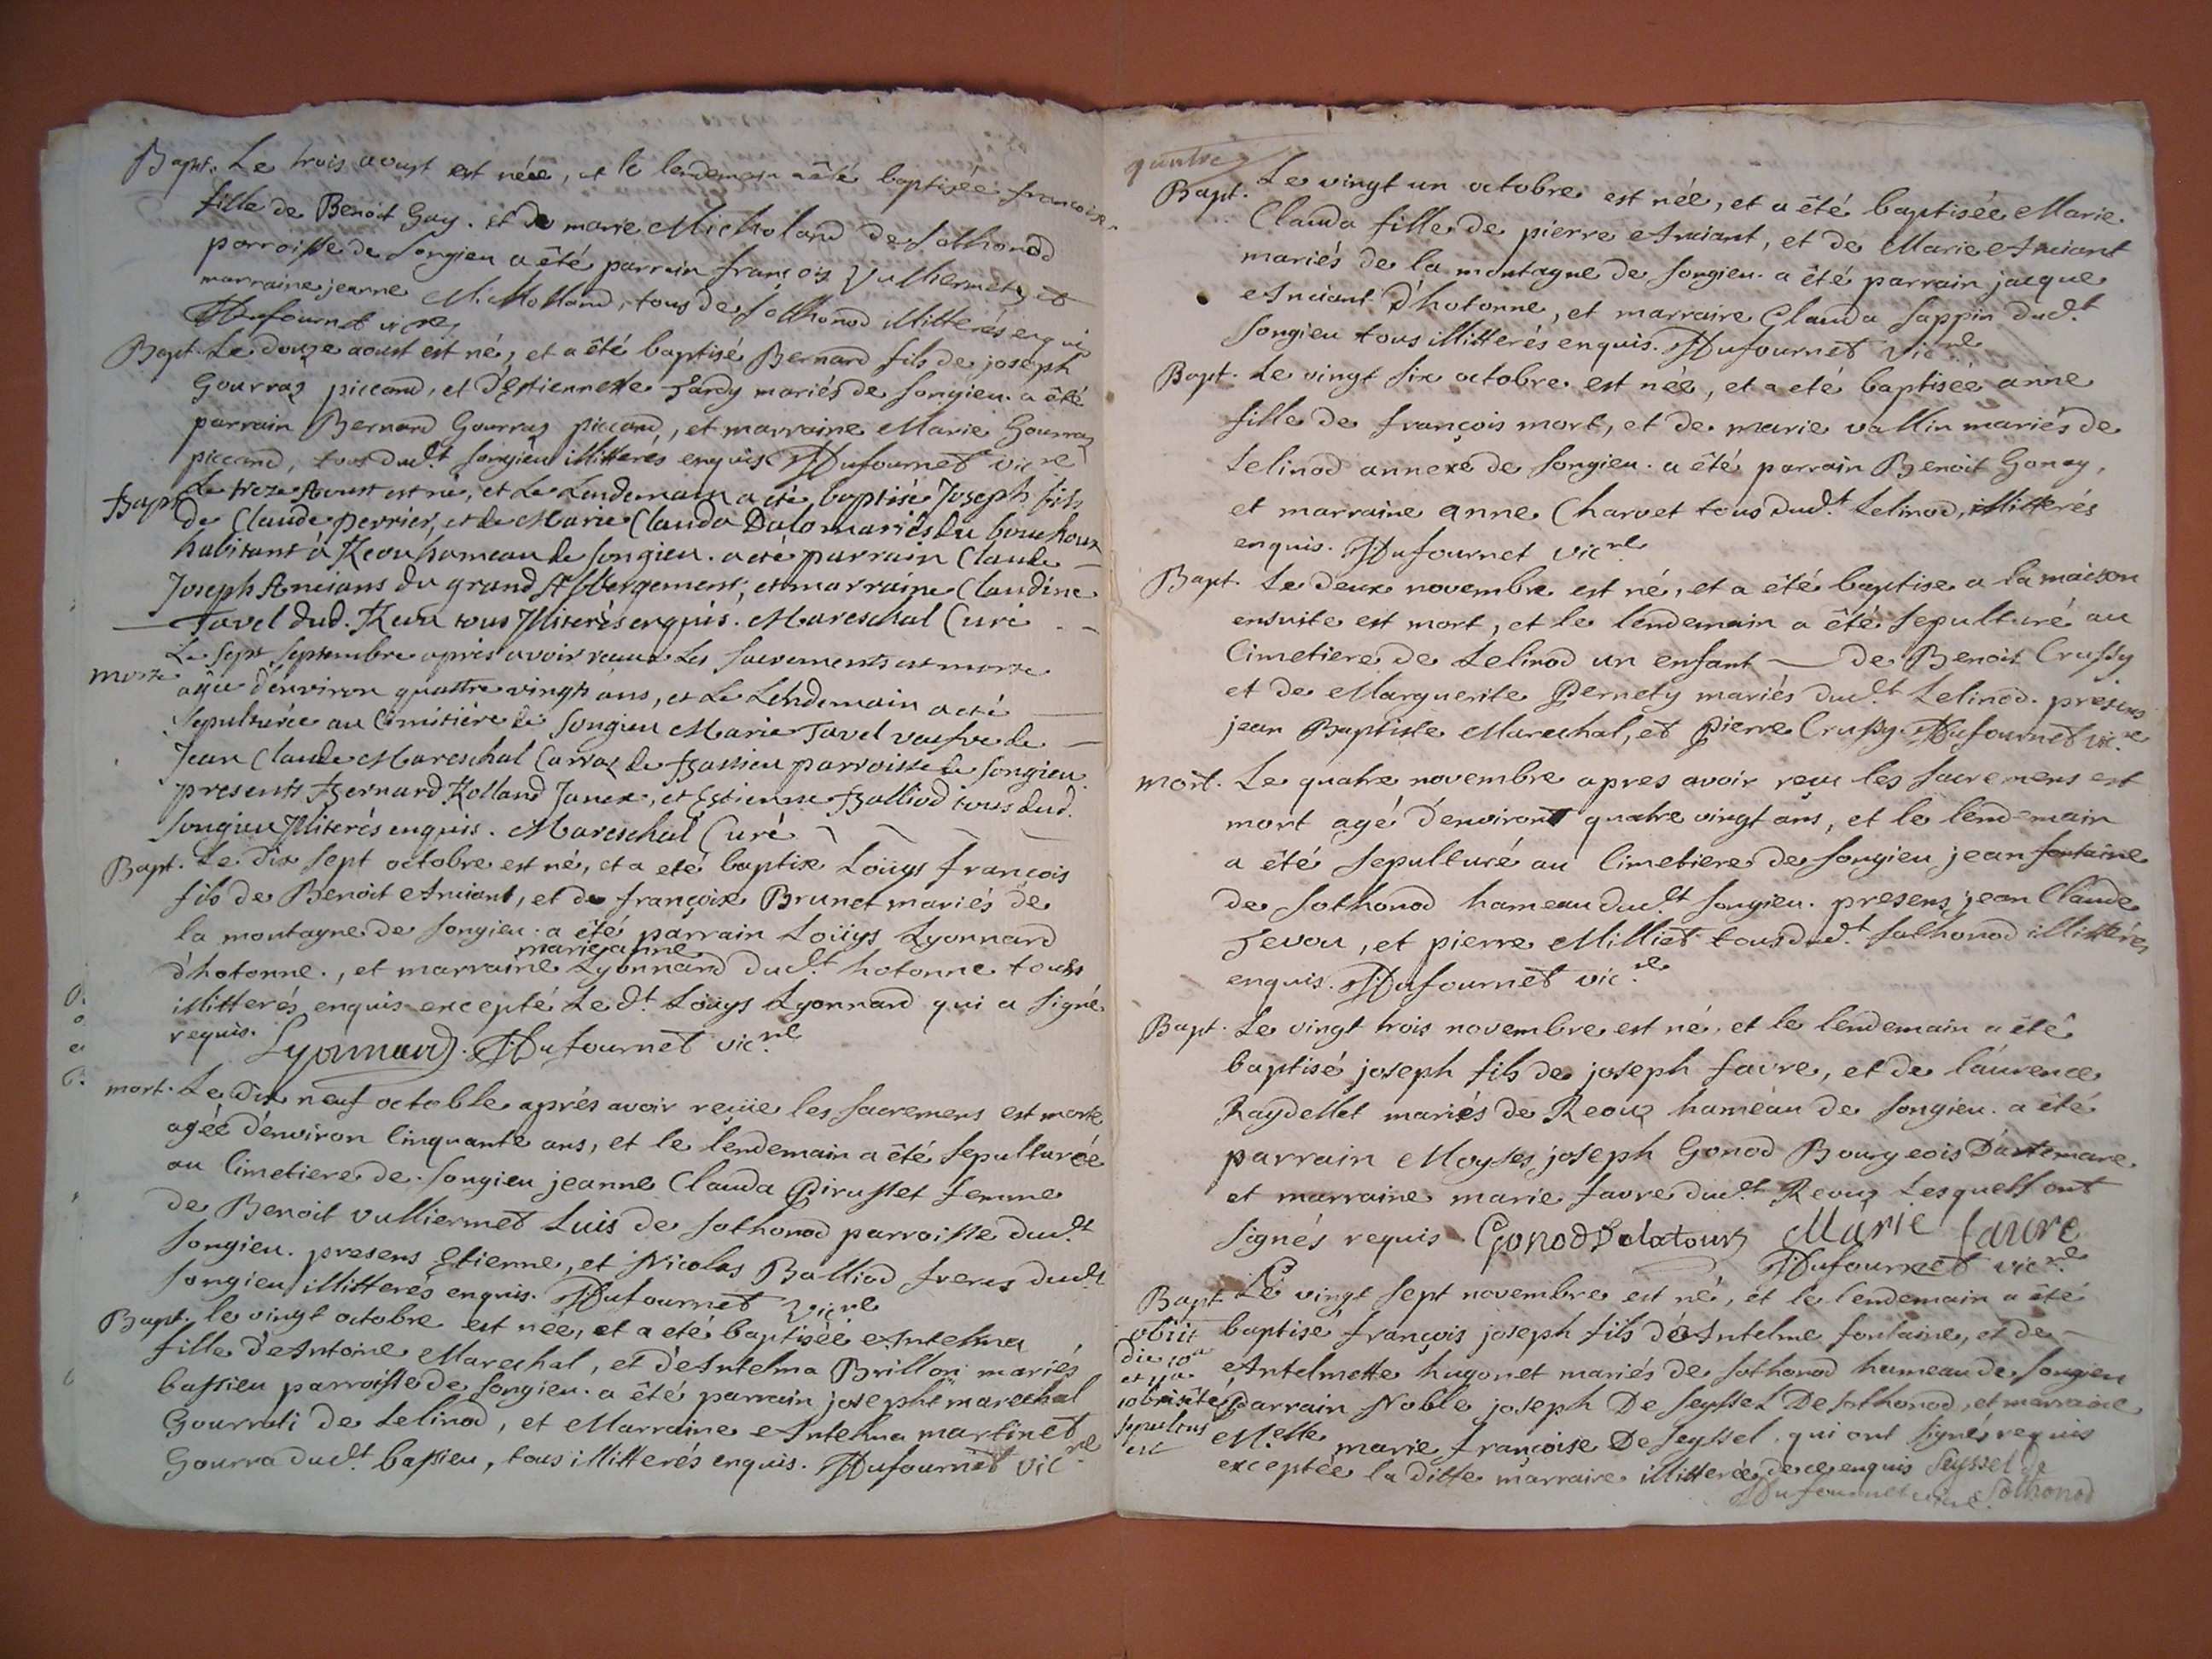 Bapt. Le trois aoust est née, et le lendemain a êté baptisée francoise
fille de Benoit Gay. et de marie Micholand de Sothonod
parroisse de Songieu a êté parrain françois Vulliermet, et
marraine jeanne Micholland, tous de Sothonod illitterés enquis
Dufournet vic.re
Bapt. Le douze aoust est né, et a êté baptisé Bernard fils de joseph
Gourraz piccand, et d'Estiennette Jardy mariés de Songieu. a êté
parrain Bernard Gourraz piccand, et marraine Marie Gourraz
piccand, tous dud.t Songieu illitterés enquis Dufournet vic.re
Bapt. Le treze Aoust est né, et Le Lendemain a eté baptisé Joseph fils
de Claude perrier, et de Marie Clauda Dalo mariés du bouchoux
habitant à Reoux hameau de Songieu. a eté parrain Claude
Joseph Ancians du grand Abbergement; et marraine Claudine
Tavel dud. Reoux tous Jlliterés enquis. Mareschal Curé
morte Le Sept Septembre après avoir receu Les Sacrements est morte
agée d'environ quattre vingts ans, et Le Lendemain a eté
Sepulturée au Cimitière de Songieu Marie Tavel veufve de
Jean Claude Mareschal Carraz de Bassieu parroisse de Songieu
presents Bernard Rolland Janex, et Estienne Balliod tous dud.
Songieu Jlliterés enquis. Mareschal Curé
Bapt. Le dix sept octobre est né, et a eté baptisé Loüys françois
fils de Benoit Anciant, et de françoise Brunet mariés de
la montagne de Songieu. a êté parrain Loüys Lyonnard
marie janne
d'hotonne., et marraine Lyonnard dud.t hotonne tous
illitterés enquis excepté Le d.t Loüys Lyonnard qui a Signé
requis. Lyonnard. Dufournet vic.re
mort. Le dix neuf octobre aprés avoir reçüe les Sacremens est morte
agée d'environ Cinquante ans, et le lendemain a êté Sepulturée
au Cimetiere de Songieu jeanne Clauda Pirusset femme
de Benoit vulliermet Luis de Sothonod parroisse dud.t
Songieu. presens Etienne, et Nicolas Balliod freres dud.t
Songieu illitterés enquis. Dufournet vic.re
Bapt. le vingt octobre est née, et a eté baptisée Antelma
fille d'Antoine Marechal, et d'Antelma Brillon mariés
bassieu parroisse de Songieu. a êté parrain joseph marechal
Gourrati de Lelinod, et Marraine Antelma martinet
Gourra dud.t bassieu, tous illitterés enquis. Dufournet vic.re
quatre
Bapt. Le vingt un octobre est née, et a êté baptisée Marie
Clauda fille de pierre Anciant, et de Marie Anciant
mariés de la montagne de Songieu. a êté parrain jacque
Anciant d'hotonne, et marraine Clauda Sappin dud.t
Songieu tous illitterés enquis. Dufournet vic.re
Bapt. Le vingt Six octobre est née, et a eté baptisée anne
fille de françois mort, et de marie vallin mariés de
Lelinod annexe de Songieu. a êté parrain Benoit Gonay,
et marraine anne Charvet tous dud.t Lelinod, illitterés
enquis. Dufournet vic.re
Bapt. Le deux novembre est né, et a êté baptise a la maison
ensuite est mort, et le lendemain a êté Sepulturé au
Cimetiere de Lelinod un enfant — de Benoit Crussy
et de Marguerite Pernety mariés dud.t Lelinod. presens
jean Baptiste Marechal, et Pierre Crussy Dufournet vic.re
mort. Le quatre novembre apres avoir reçu les Sacremens est
mort agé d'environt quatre vingt ans, et le lendemain
a êté Sepulturé au Cimetiere de Songieu jean fontaine
de Sothonod hameau dud.t Songieu. presens jean Claude
Jevou, et pierre Milliet tous dud.t Sothonod illitterés
enquis. Dufournet vic.re
Bapt. Le vingt trois novembre est né, et le lendemain a êté
baptisé joseph fils de joseph favre, et de laurence
Raydellet mariés de Reoux hameau de Songieu. a êté
parrain Moyses joseph Gonod Bourgeois D'artemare
et marraine marie favre dud.t Reoux Lesquells ont
Signés requis Gonod Delatour Marie favre
Dufournet vic.re
Bapt. Le vingt Sept novembre est né, et le lendemain a êté
obiit
die 10a
et 11a
10bris
sepultus
est
baptisé françois joseph fils d'Antelme fontaine, et de
Antelmette hugonet mariés de Sothonod hameau de Songieu
parrain Noble joseph De Seyssel De Sothonod, et marraine
M.elle marie françoise De Seyssel qui ont Signés requis
exceptée la ditte marraine illitterée de ce enquis Seyssel de
Sothonod
Dufournet vic.re